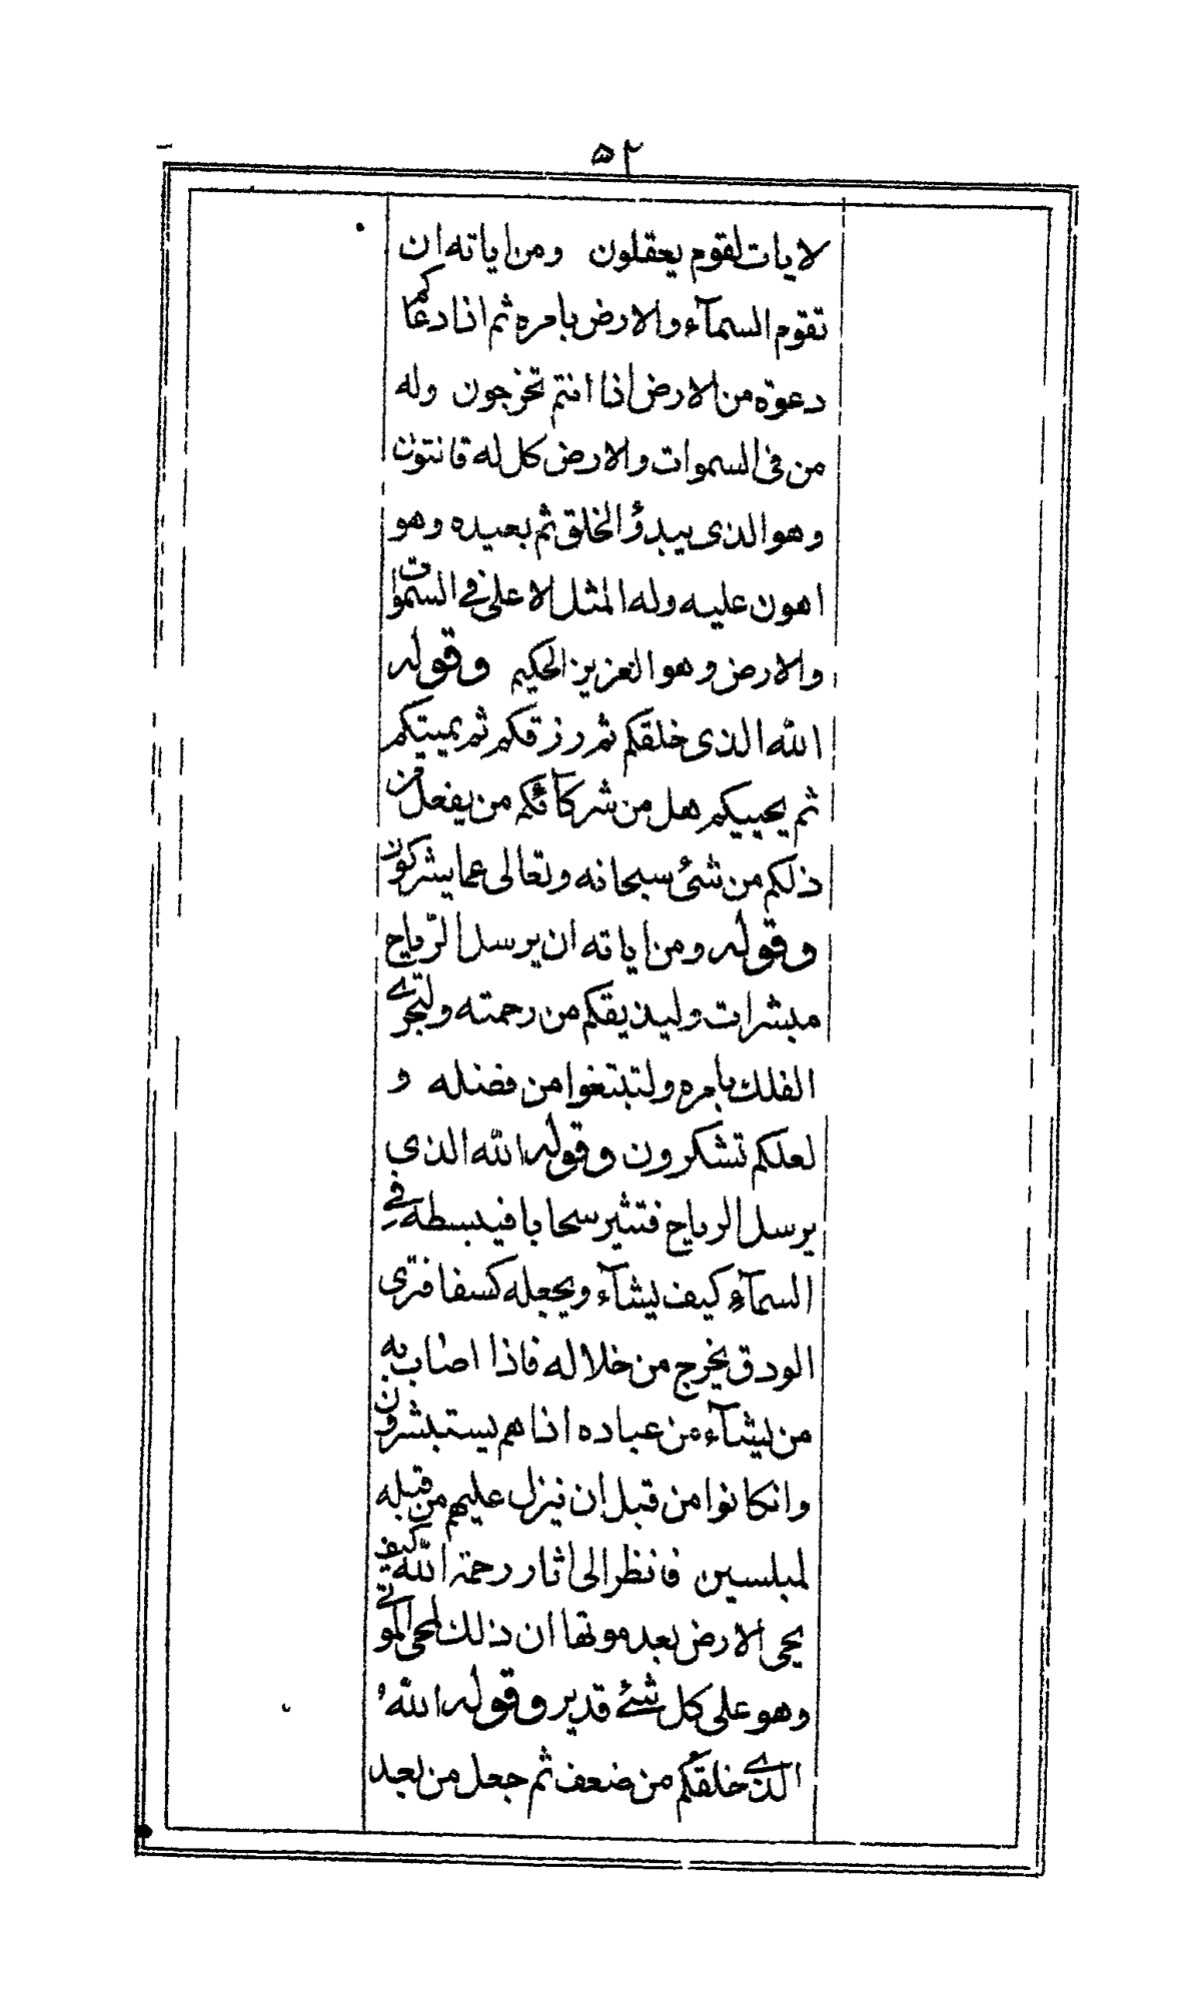 ۵۲
لايات لقوم يعقلون ومن اياته ان
تقوم السمآء والارض بامره ثم اذا دعاكم
دعوة من الارض اذا انتم تخرجون وله
من فى السموات والارض كل له قانتون
وهو الذى يبدؤ الخلق ثم يعيده وهو
اهون عليه وله المثل الاعلى فے السموات
والارض وهو العزيز الحكيم وقوله
الله الذى خلقكم ثم رزقكم ثم يميتكم
ثم يحييكم هل من شركآئكم من يفعل من
ذلكم من شئ سبحانه وتعالى عما يشركون
وقوله ومن اياته ان يرسل الرّياح
مبشرات وليذيقكم من رحمته ولتجرے
الفلك بامره ولتبتغوا من فضله و
لعلكم تشكرون وقوله الله الذى
يرسل الرياح فتثير سحابا فيبسطه فے
السمآءِ كيف يشآء ويجعله كسفا فترى
الودق يخرج من خلاله فاذا اصاب به
من يشآء من عباده اذا هم يستبشرون
وانكانوا من قبل ان ينزل عليهم من قبله
لمبلسين فانظر الى اثار رحمة الله كيف
يحى الارض بعد موتها ان ذلك لمحى الموتى
وهو على كل شئے قدير وقوله اللهُ
الذے خلقكم من ضعف ثم جعل من بعد